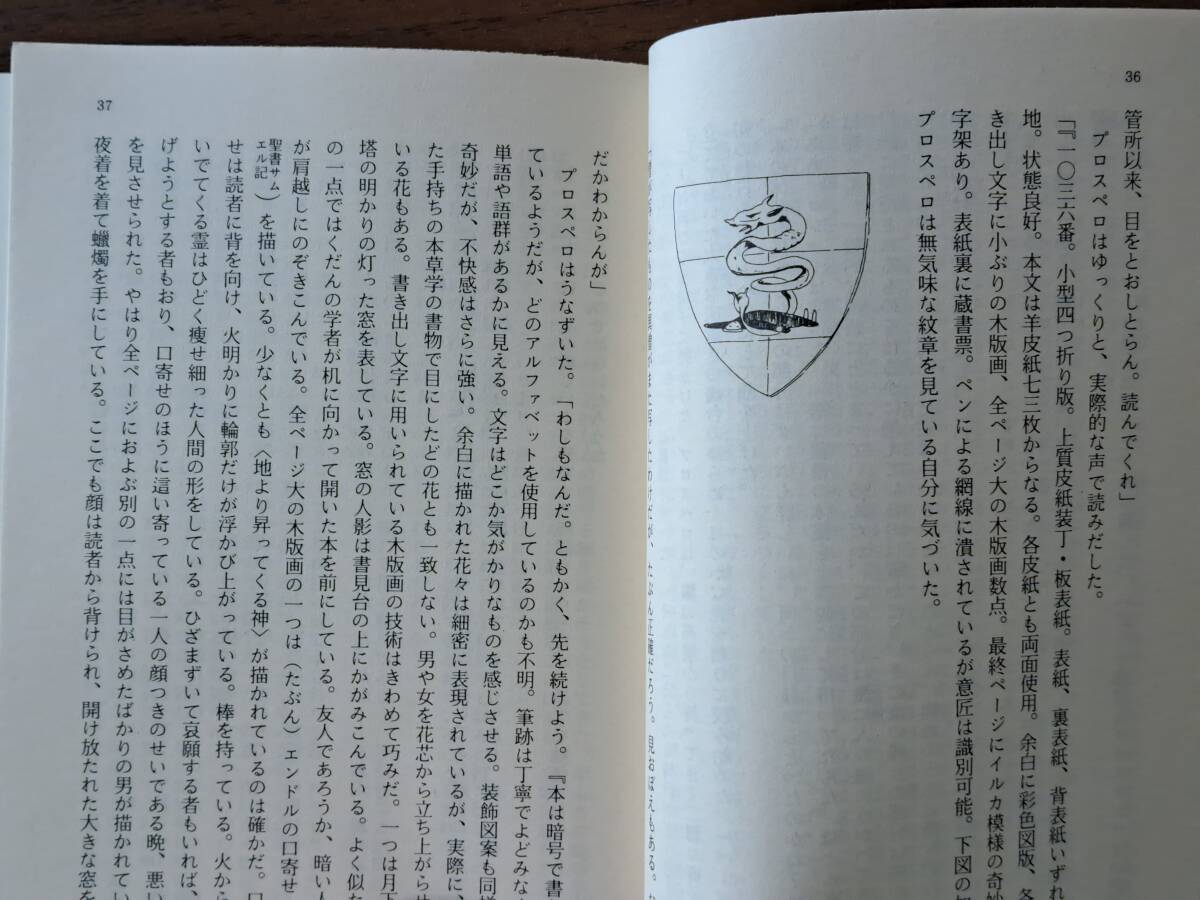 36
管所以来、目をとおしとらん。読んでくれ」
プロスペロはゆっくりと、実際的な声で読みだした。
「『一〇三六番。小型四つ折り版。上質皮紙装丁・板表紙。表紙、裏表紙、背表紙いずれ
地。状態良好。本文は羊皮紙七三枚からなる。各皮紙とも両面使用。余白に彩色図版、各
き出し文字に小ぶりの木版画、全ページ大の木版画数点。最終ページにイルカ模様の奇妙
字架あり。表紙裏に蔵書票。ペンによる網線に潰されているが意匠は識別可能。下図の
プロスペロは無気味な紋章を見ている自分に気づいた。
たぶん正確だろう。見おぼえもある。
37
だかわからんが」
プロスペロはうなずいた。「わしもなんだ。ともかく、先を続けよう。『本は暗号で書
ているようだが、どのアルファベットを使用しているのかも不明。筆跡は丁寧でよどみな
単語や語群があるかに見える。文字はどこか気がかりなものを感じさせる。装飾図案も同様
奇妙だが、不快感はさらに強い。余白に描かれた花々は細密に表現されているが、実際に、
た手持ちの本草学の書物で目にしたどの花とも一致しない。男や女を花芯から立ち上がらせ
いる花もある。書き出し文字に用いられている木版画の技術はきわめて巧みだ。一つは月下
塔の明かりの灯った窓を表している。窓の人影は書見台の上にかがみこんでいる。よく似た
の一点ではくだんの学者が机に向かって開いた本を前にしている。友人であろうか、暗い人
が肩越しにのぞきこんでいる。全ページ大の木版画の一つは（たぶん）エンドルの口寄せ
（聖書サムエル記）を描いている。少なくとも〈地より昇ってくる神〉が描かれているのは確かだ。口
せは読者に背を向け、火明かりに輪郭だけが浮かび上がっている。棒を持っている。火から
いでてくる霊はひどく痩せ細った人間の形をしている。ひざまずいて哀願する者もいれば、
げようとする者もおり、口寄せのほうに這い寄っている一人の顔つきのせいである晩、悪い
を見させられた。やはり全ページにおよぶ別の一点には目がさめたばかりの男が描かれてい
夜着を着て蠟燭を手にしている。ここでも顔は読者から背けられ、開け放たれた大きな窓を